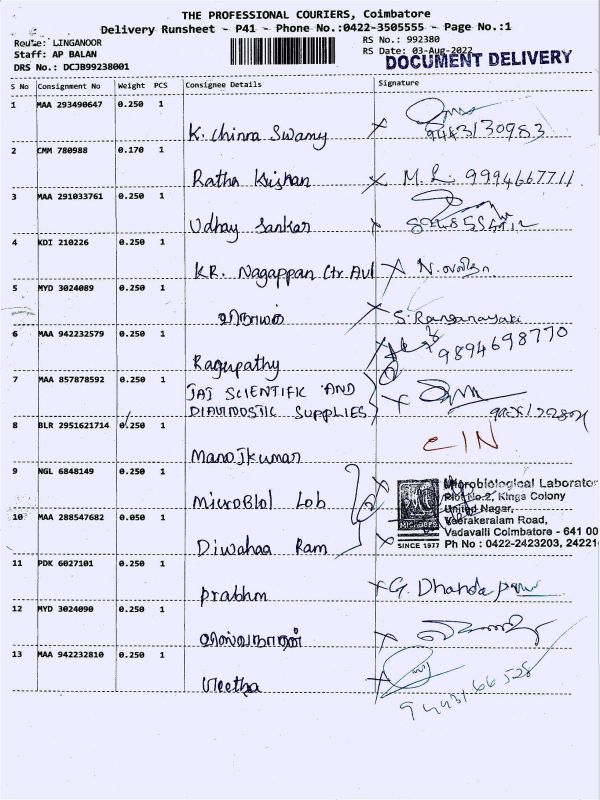 THE PROFESSIONAL COURIERS, Coimbatore
Delivery Runsheet - P41 - Phone No.:0422-3505555 - Page No.:1
Route: LINGANOOR
RS No.: 992380
Staff: AP BALAN
RS Date: 03-Aug-2022
DOCUMENT DELIVERY
DRS No.: DCJB99238001
S No Consignment No Weight PCS Consignee Details Signature
1 MAA 293490647 0.250 1
K. Chinna Swamy X 9443130983
2 CMM 780988 0.170 1
Ratha Krishan X M. R. 9994667711
3 MAA 291033761 0.250 1
Udhay Sankar X
4 KDI 210226 0.250 1
KR. Nagappan Ctr Avl X
5 MYD 3024089 0.250 1
விநாயகம் X S. Ranganayaki
6 MAA 942232579 0.250 1
Ragupathy X 9894698770
7 MAA 857878592 0.250 1
JAI SCIENTIFIC AND
DIAGNOSTIC SUPPLIES X
8 BLR 2951621714 0.250 1
CIN
Manojkumar
9 NGL 6848149 0.250 1
Microbiol Lab X
Microbiological Laborator
Plot No.2, Kings Colony
United Nagar,
Veerakeralam Road,
Vadavalli Coimbatore - 641 00
Ph No : 0422-2423203, 24221
MICROBES
SINCE 1977
10 MAA 288547682 0.050 1
Diwahaa Ram X
11 PDK 6027101 0.250 1
Prabhu X G. Dhandapani
12 MYD 3024090 0.250 1
விஸ்வநாதன் X
13 MAA 942232810 0.250 1
Geetha X